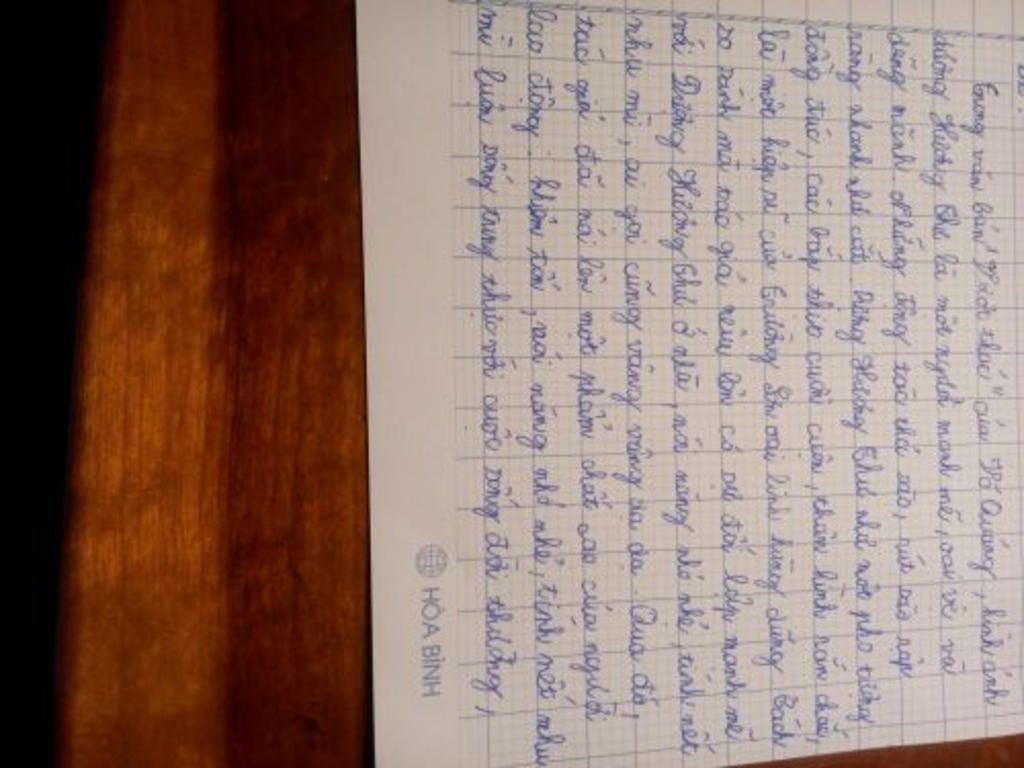 Bài:
Trong văn bản "Vượt thác" của Võ Quảng, hình ảnh
dượng Hương Thư là một người mạnh mẽ, oai vệ và
dũng mãnh. Những động tác thả sào, rút sào rập
ràng nhanh như cắt. Dượng Hương Thư như một pho tượng
đồng đúc, các bắp thịt cuồn cuộn, hàm
là một hiệp sĩ của Trường Sơn oai linh hùng dũng. Cách
so sánh mà tác giả nêu lên có sự đối lập mạnh mẽ
với Dượng Hương Thư ở nhà, nói năng nhỏ nhẻ, tính nết
nhu mì, ai gọi cũng vâng vâng dạ dạ. Qua đó,
tác giả đã nói lên một phẩm chất của người
lao động: khiêm tốn, nói năng nhỏ nhẻ, tính nết nhu
mì luôn sống trung thực với cuộc sống đời thường,
HÒA BÌNH